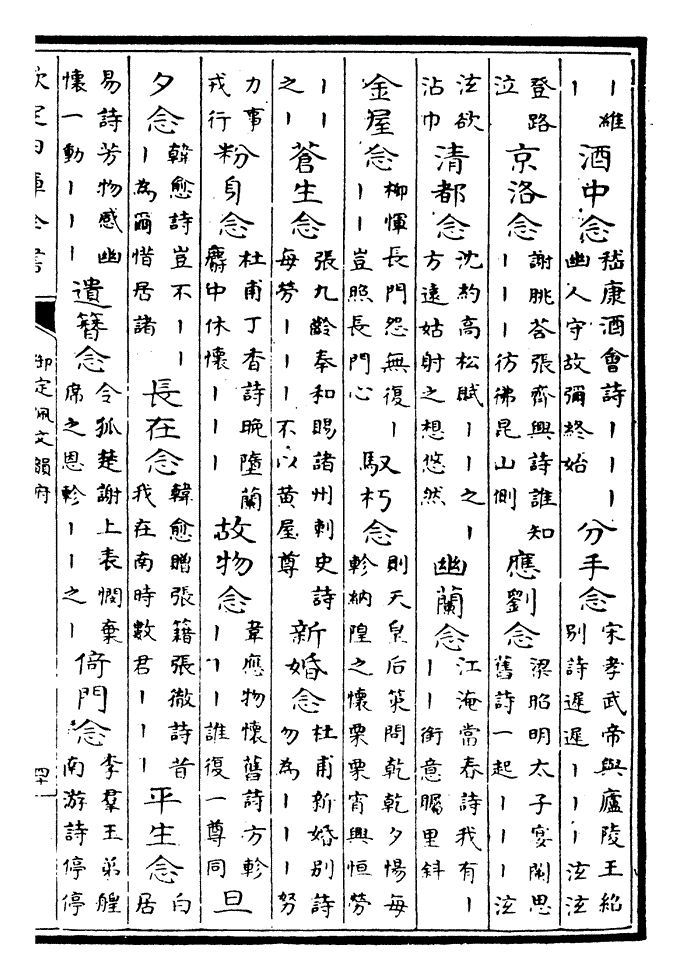 ｜維｜ 酒中念 嵇康酒會詩｜｜｜幽人守故彌終始 分手念 宋孝武帝與廬陵王紹別詩遲遲｜｜｜泫泫
登路泣 京洛念 謝朓荅張齊興詩誰知｜｜｜彷彿昆山側 應劉念 梁昭明太子宴闌思舊詩一起｜｜｜泫
泫欲沾巾 清都念 沈約高松賦｜｜之｜方遠姑射之想悠然 幽蘭念 江淹當春詩我有｜｜｜銜意矚里斜
金屋念 柳惲長門怨無復｜｜｜豈照長門心 馭朽念 則天皇后筞問乾乾夕惕每軫納隍之懷栗栗宵興恒勞
｜｜之｜ 蒼生念 張九齡奉和賜諸州刺史詩每勞｜｜｜不以黄屋尊 新婚念 杜甫新婚別詩勿為｜｜｜努
力事戎行 粉身念 杜甫丁香詩晚墮蘭麝中休懷｜｜｜ 故物念 韋應物懷舊詩方軫｜｜｜誰復一尊同 旦
夕念 韓愈詩豈不｜｜｜為爾惜居諸 長在念 韓愈贈張籍張徹詩昔我在南時數君｜｜｜ 平生念 白居
易詩芳物感幽懷一動｜｜｜ 遺簪念 令狐楚謝上表憫棄席之恩軫｜｜之｜ 倚門念 李羣玉弟艎南游詩停停
欽定四庫全書 御定佩文韻府